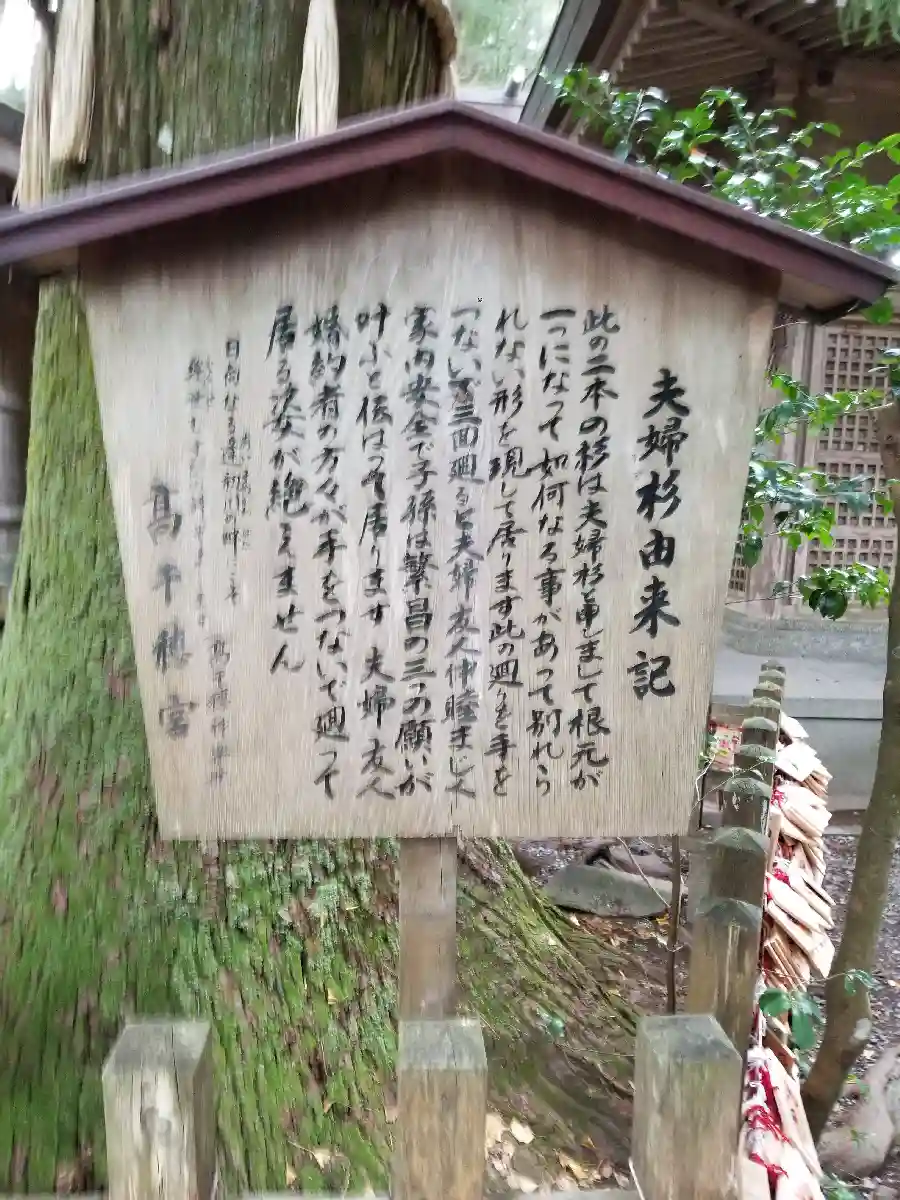 夫婦杉由来記
此の二本の杉は夫婦杉と申しまして根元が
一つになって如何なる事があって別れら
れない形を現して居ります此の廻りを手を
つないで三回廻ると夫婦友人仲睦まじく
家内安全で子孫は繁昌の三つの願いが
叶ふと伝はって居ります 夫婦 友人
婚約者の方々が手をつないで廻って
居る姿が絶えません
日向なる逢初川の
高千穂神楽
高千穂宮